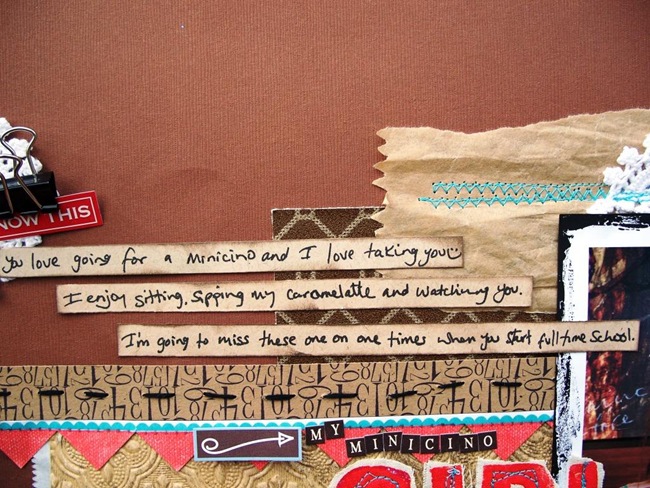 NOW THIS
you love going for a minicino and I love taking you
I enjoy sitting, sipping my caramelatte and watching you.
I'm going to miss these one on one times when you start fulltime school.
MY
MINICINO
GIRL